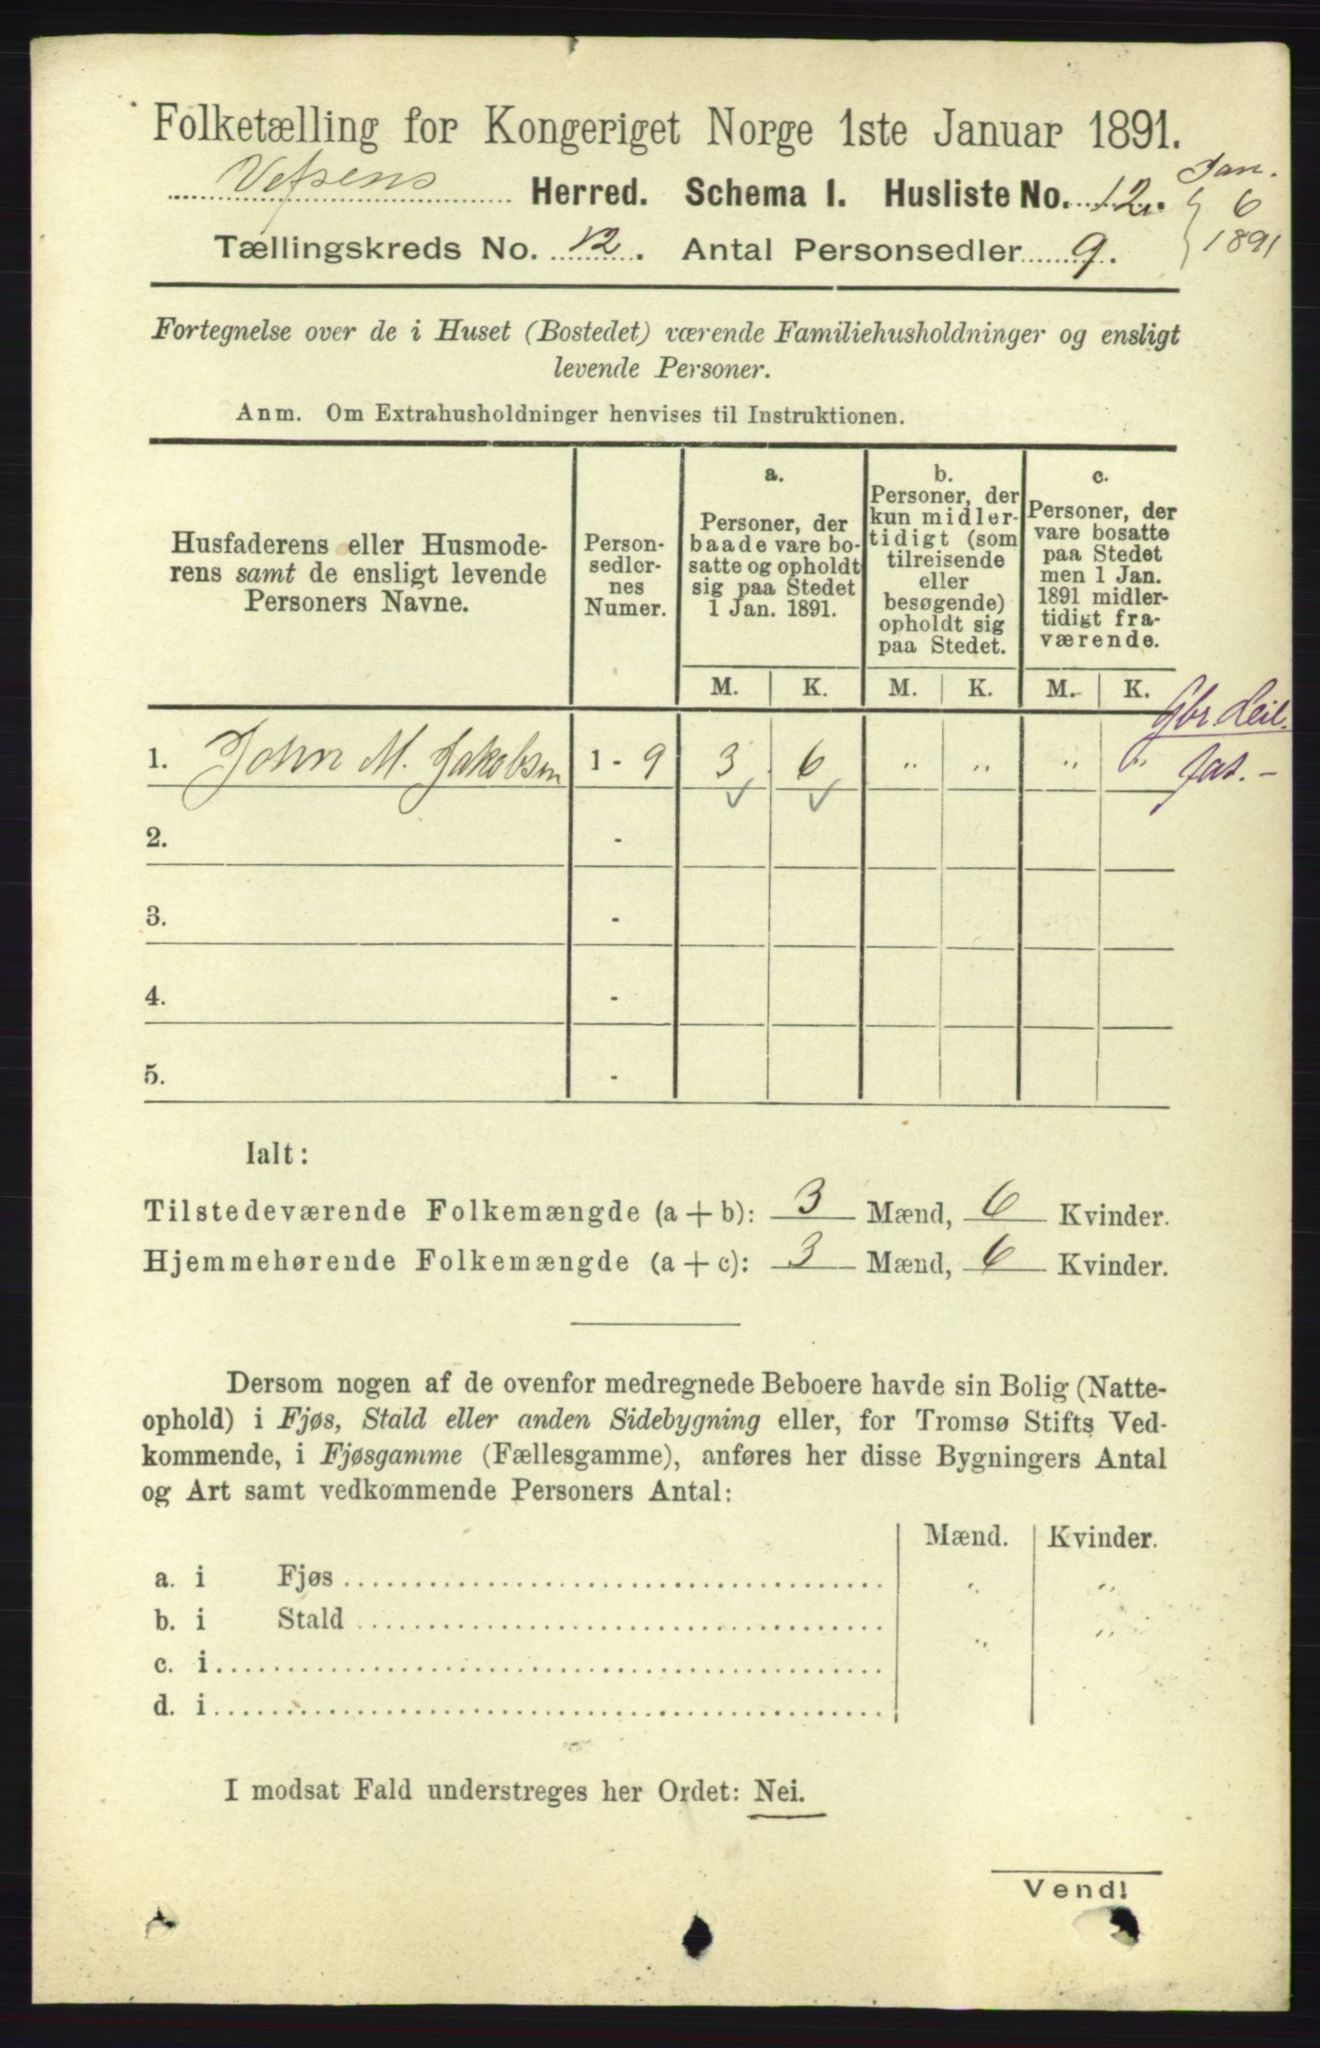 Folketælling for Kongeriget Norge 1ste Januar 1891.
Vefsens Herred. Schema I. Husliste No. 12.
Jan.
6
1891
Tællingskreds No. 12. Antal Personsedler 9.
Fortegnelse over de i Huset (Bostedet) værende Familiehusholdninger og ensligt
levende Personer.
Anm. Om Extrahusholdninger henvises til Instruktionen.
Husfaderens eller Husmode-
rens samt de ensligt levende
Personers Navne.
Person-
sedler-
nes
Numer.
a.
Personer, der
baade vare bo-
satte og opholdt
sig paa Stedet
1 Jan. 1891.
b.
Personer, der
kun midler-
tidigt (som
tilreisende
eller
besøgende)
opholdt sig
paa Stedet.
c.
Personer, der
vare bosatte
paa Stedet
men 1 Jan.
1891 midler-
tidigt fra-
værende.
M. K. M. K. M. K.
Gbr. Leil.
1. John M. Jakobsen 1 - 9 3 6 " " " "
2. -
3. -
4. -
5. -
Ialt:
Tilstedeværende Folkemængde (a + b): 3 Mænd, 6 Kvinder.
Hjemmehørende Folkemængde (a + c): 3 Mænd, 6 Kvinder.
Dersom nogen af de ovenfor medregnede Beboere havde sin Bolig (Natte-
ophold) i Fjøs, Stald eller anden Sidebygning eller, for Tromsø Stifts Ved-
kommende, i Fjøsgamme (Fællesgamme), anføres her disse Bygningers Antal
og Art samt vedkommende Personers Antal:
Mænd. Kvinder.
a. i Fjøs " "
b. i Stald " "
c. i
d. i
I modsat Fald understreges her Ordet: Nei.
Vend!